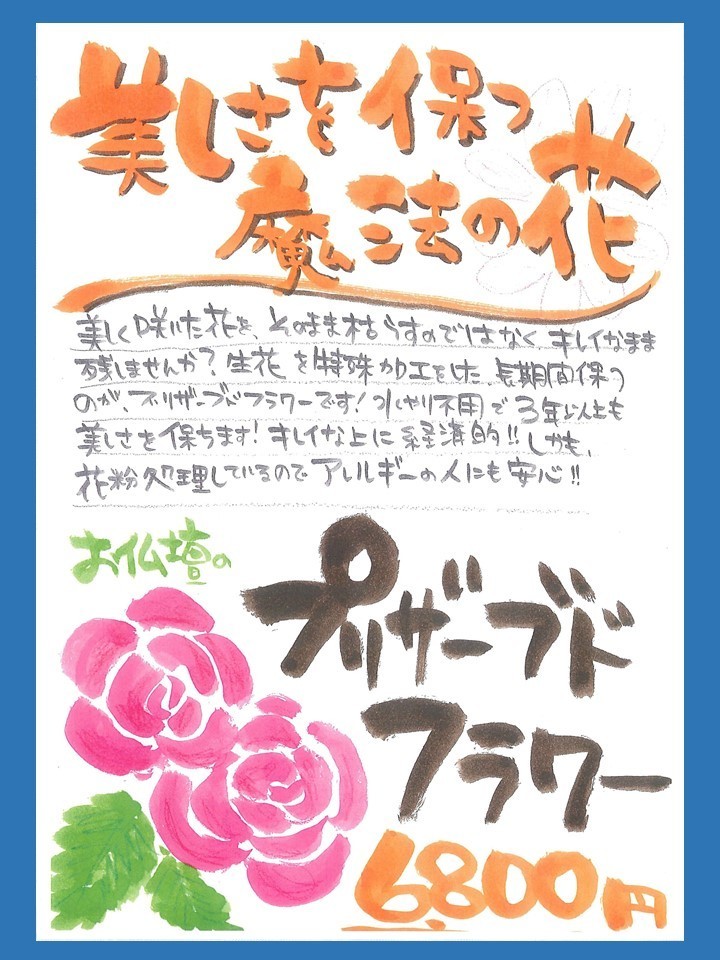 美しさを保つ
魔法の花
美しく咲いた花を、そのまま枯らすのではなく、キレイなまま
残しませんか?生花を特殊加工をした、長期間保つ
のが、プリザーブドフラワーです!水やり不用で3年以上も
美しさを保ちます!キレイな上に経済的!!しかも、
花粉処理しているのでアレルギーの人にも安心!!
お仏壇の
プリザーブド
フラワー
6800円